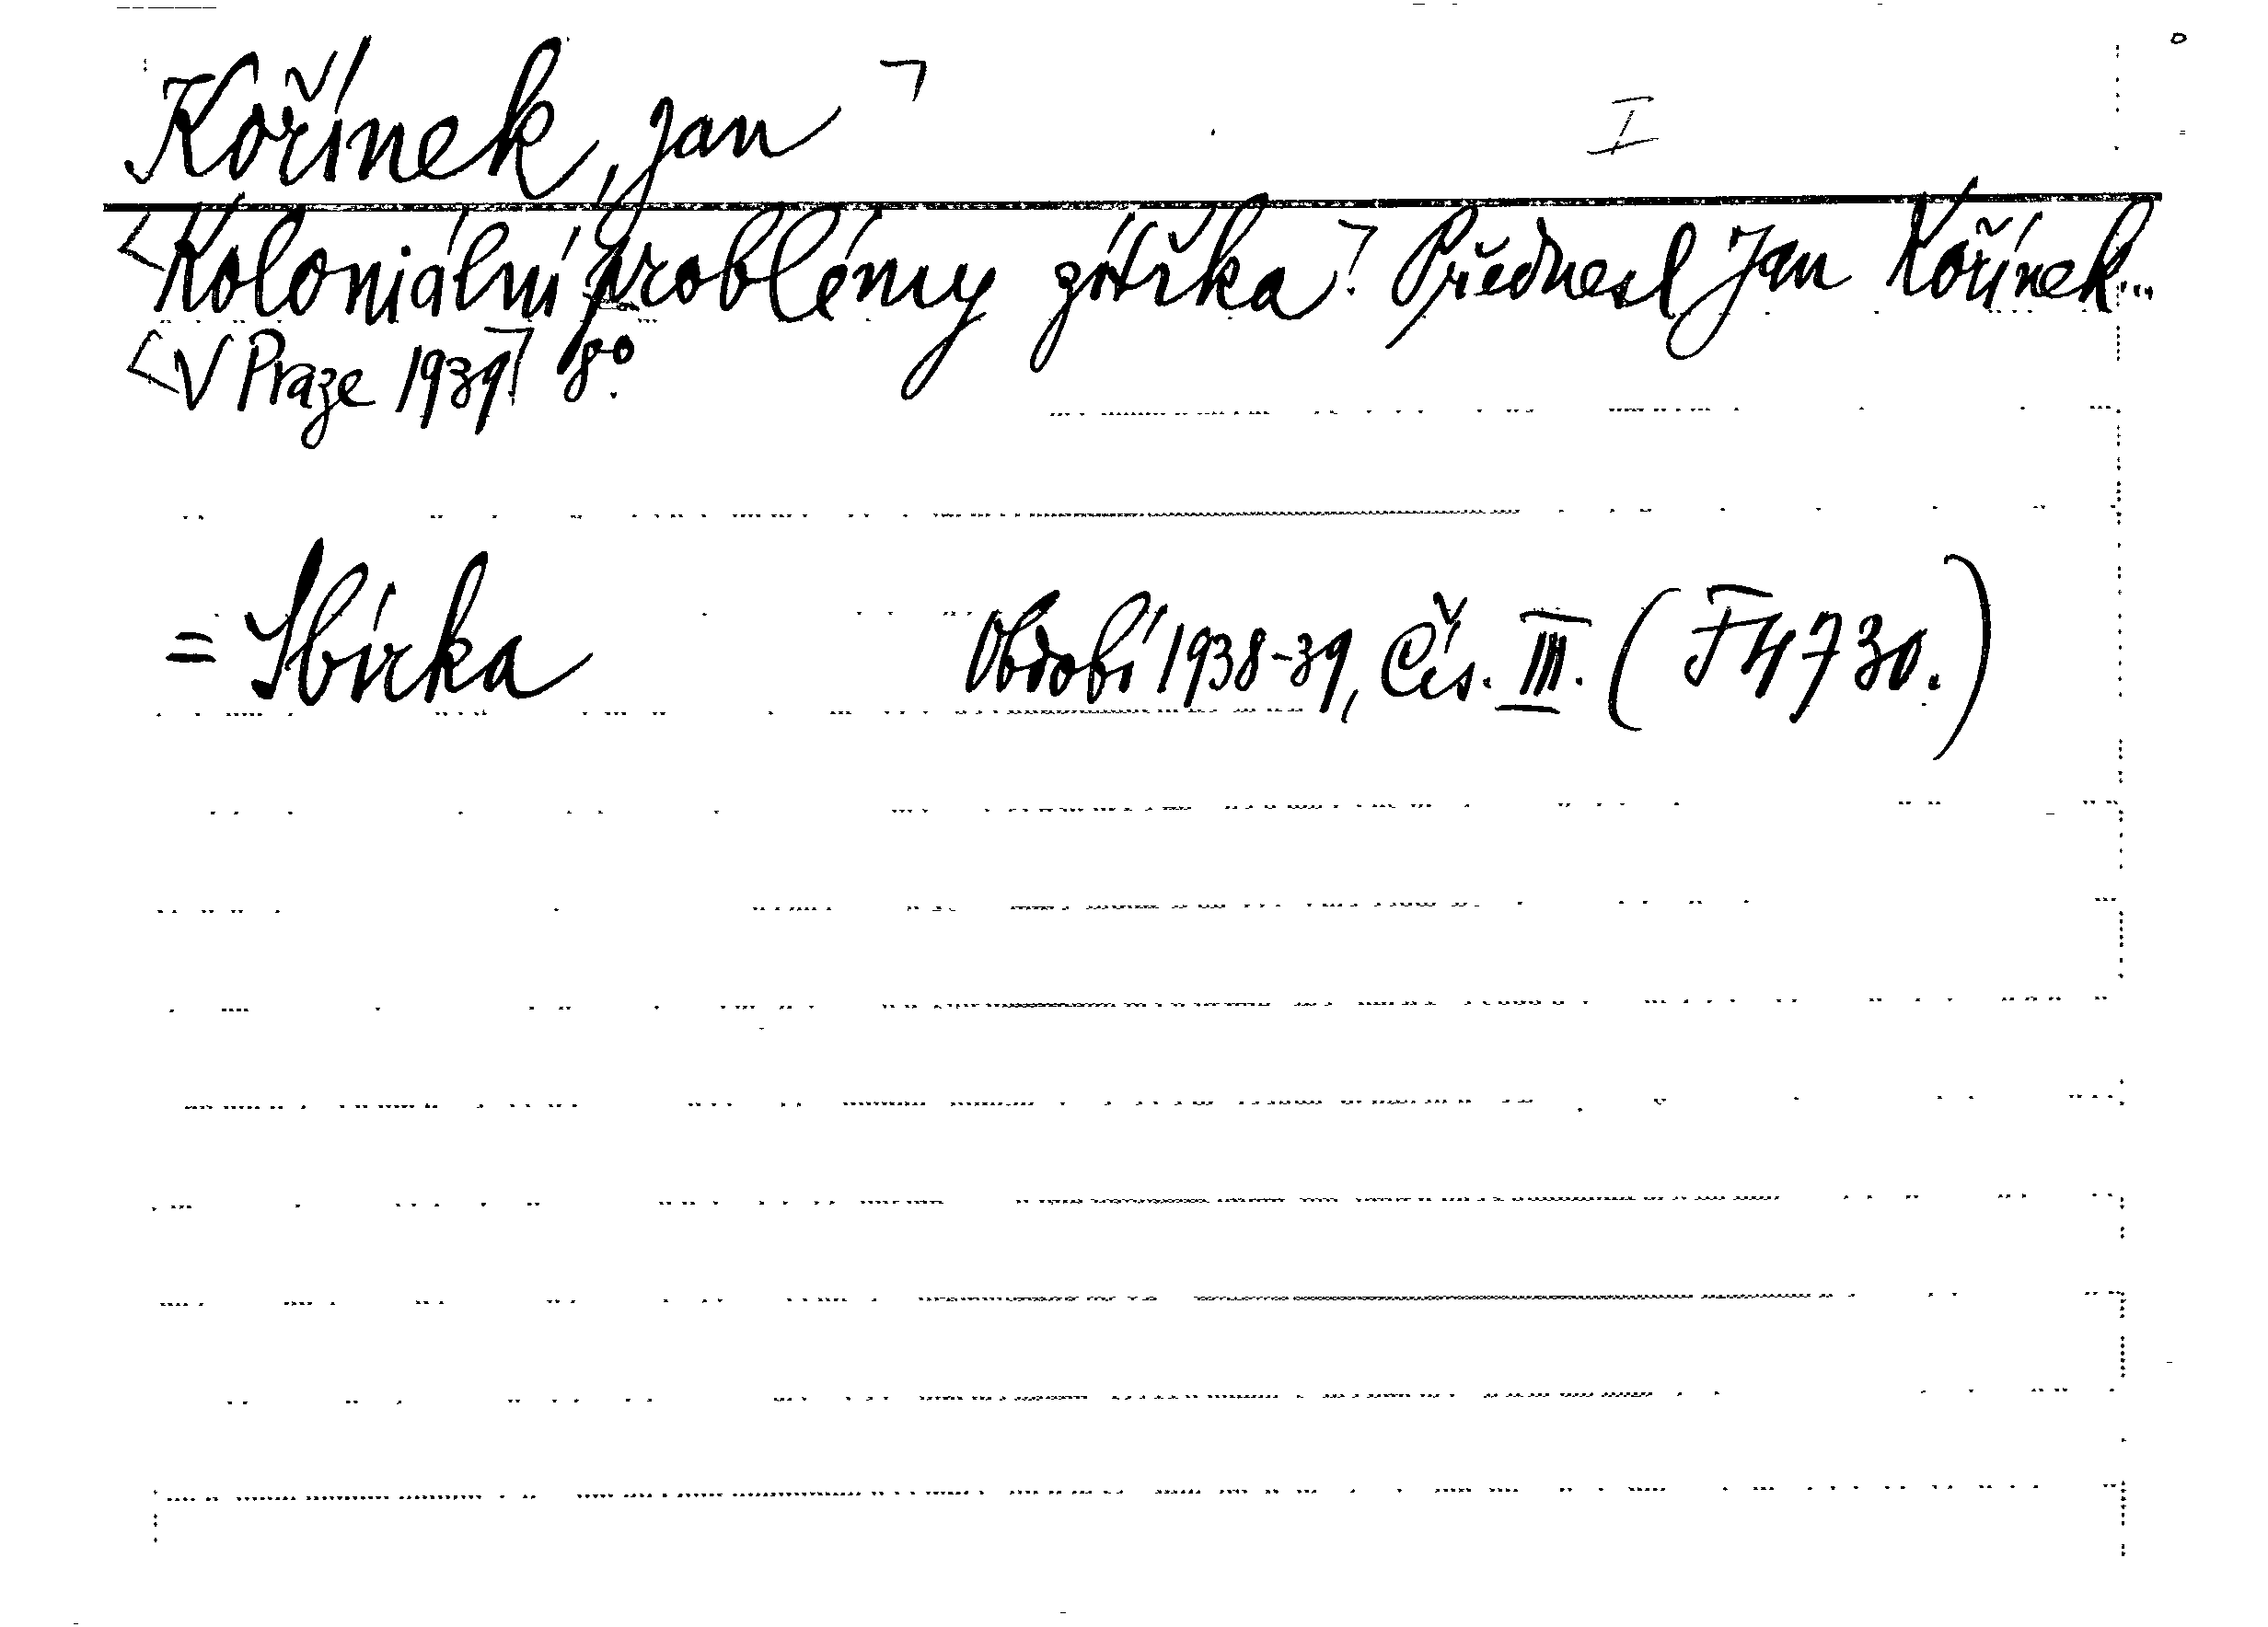 Kořínek, Jan ¬ I
<Koloniální problémy zítřka.¬ Přednesl Jan Kořínek...
<V Praze 1939¬. 8°.
= Sbírka Období 1938-39, Čís. III. (F 4730.)